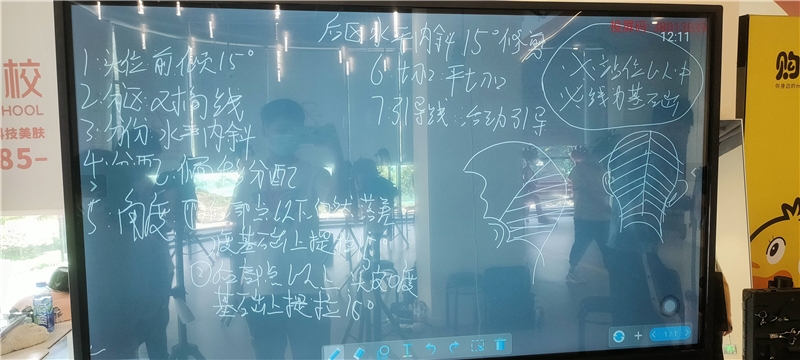 后区水平内斜15°修剪
12:11
1:头位前倾15°
2:分区:对向线
3:分份:水平内斜
4:分配:倾斜分配
5:角度:①
点以下自然落差
度基础上提拉
②
点以上
0度
基础上提拉15°
6:切口:平切口
7:引导线:活动引导
站位以人中
线为基础
校
CHOOL
科技美肤
85-
购